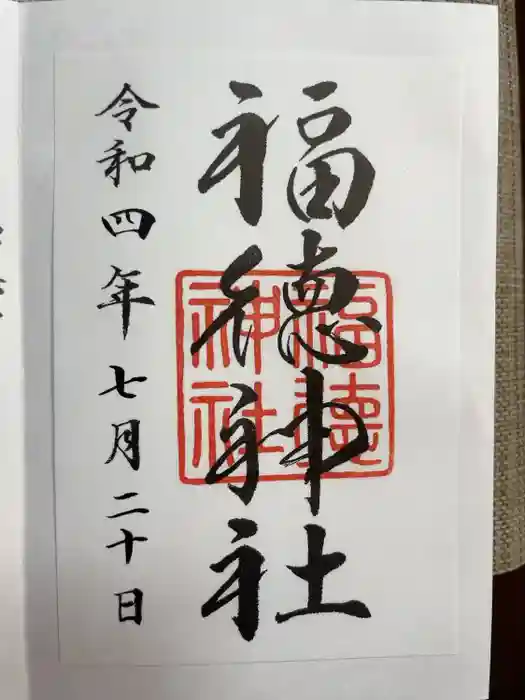 福徳神社
福徳神社
令和四年七月二十日